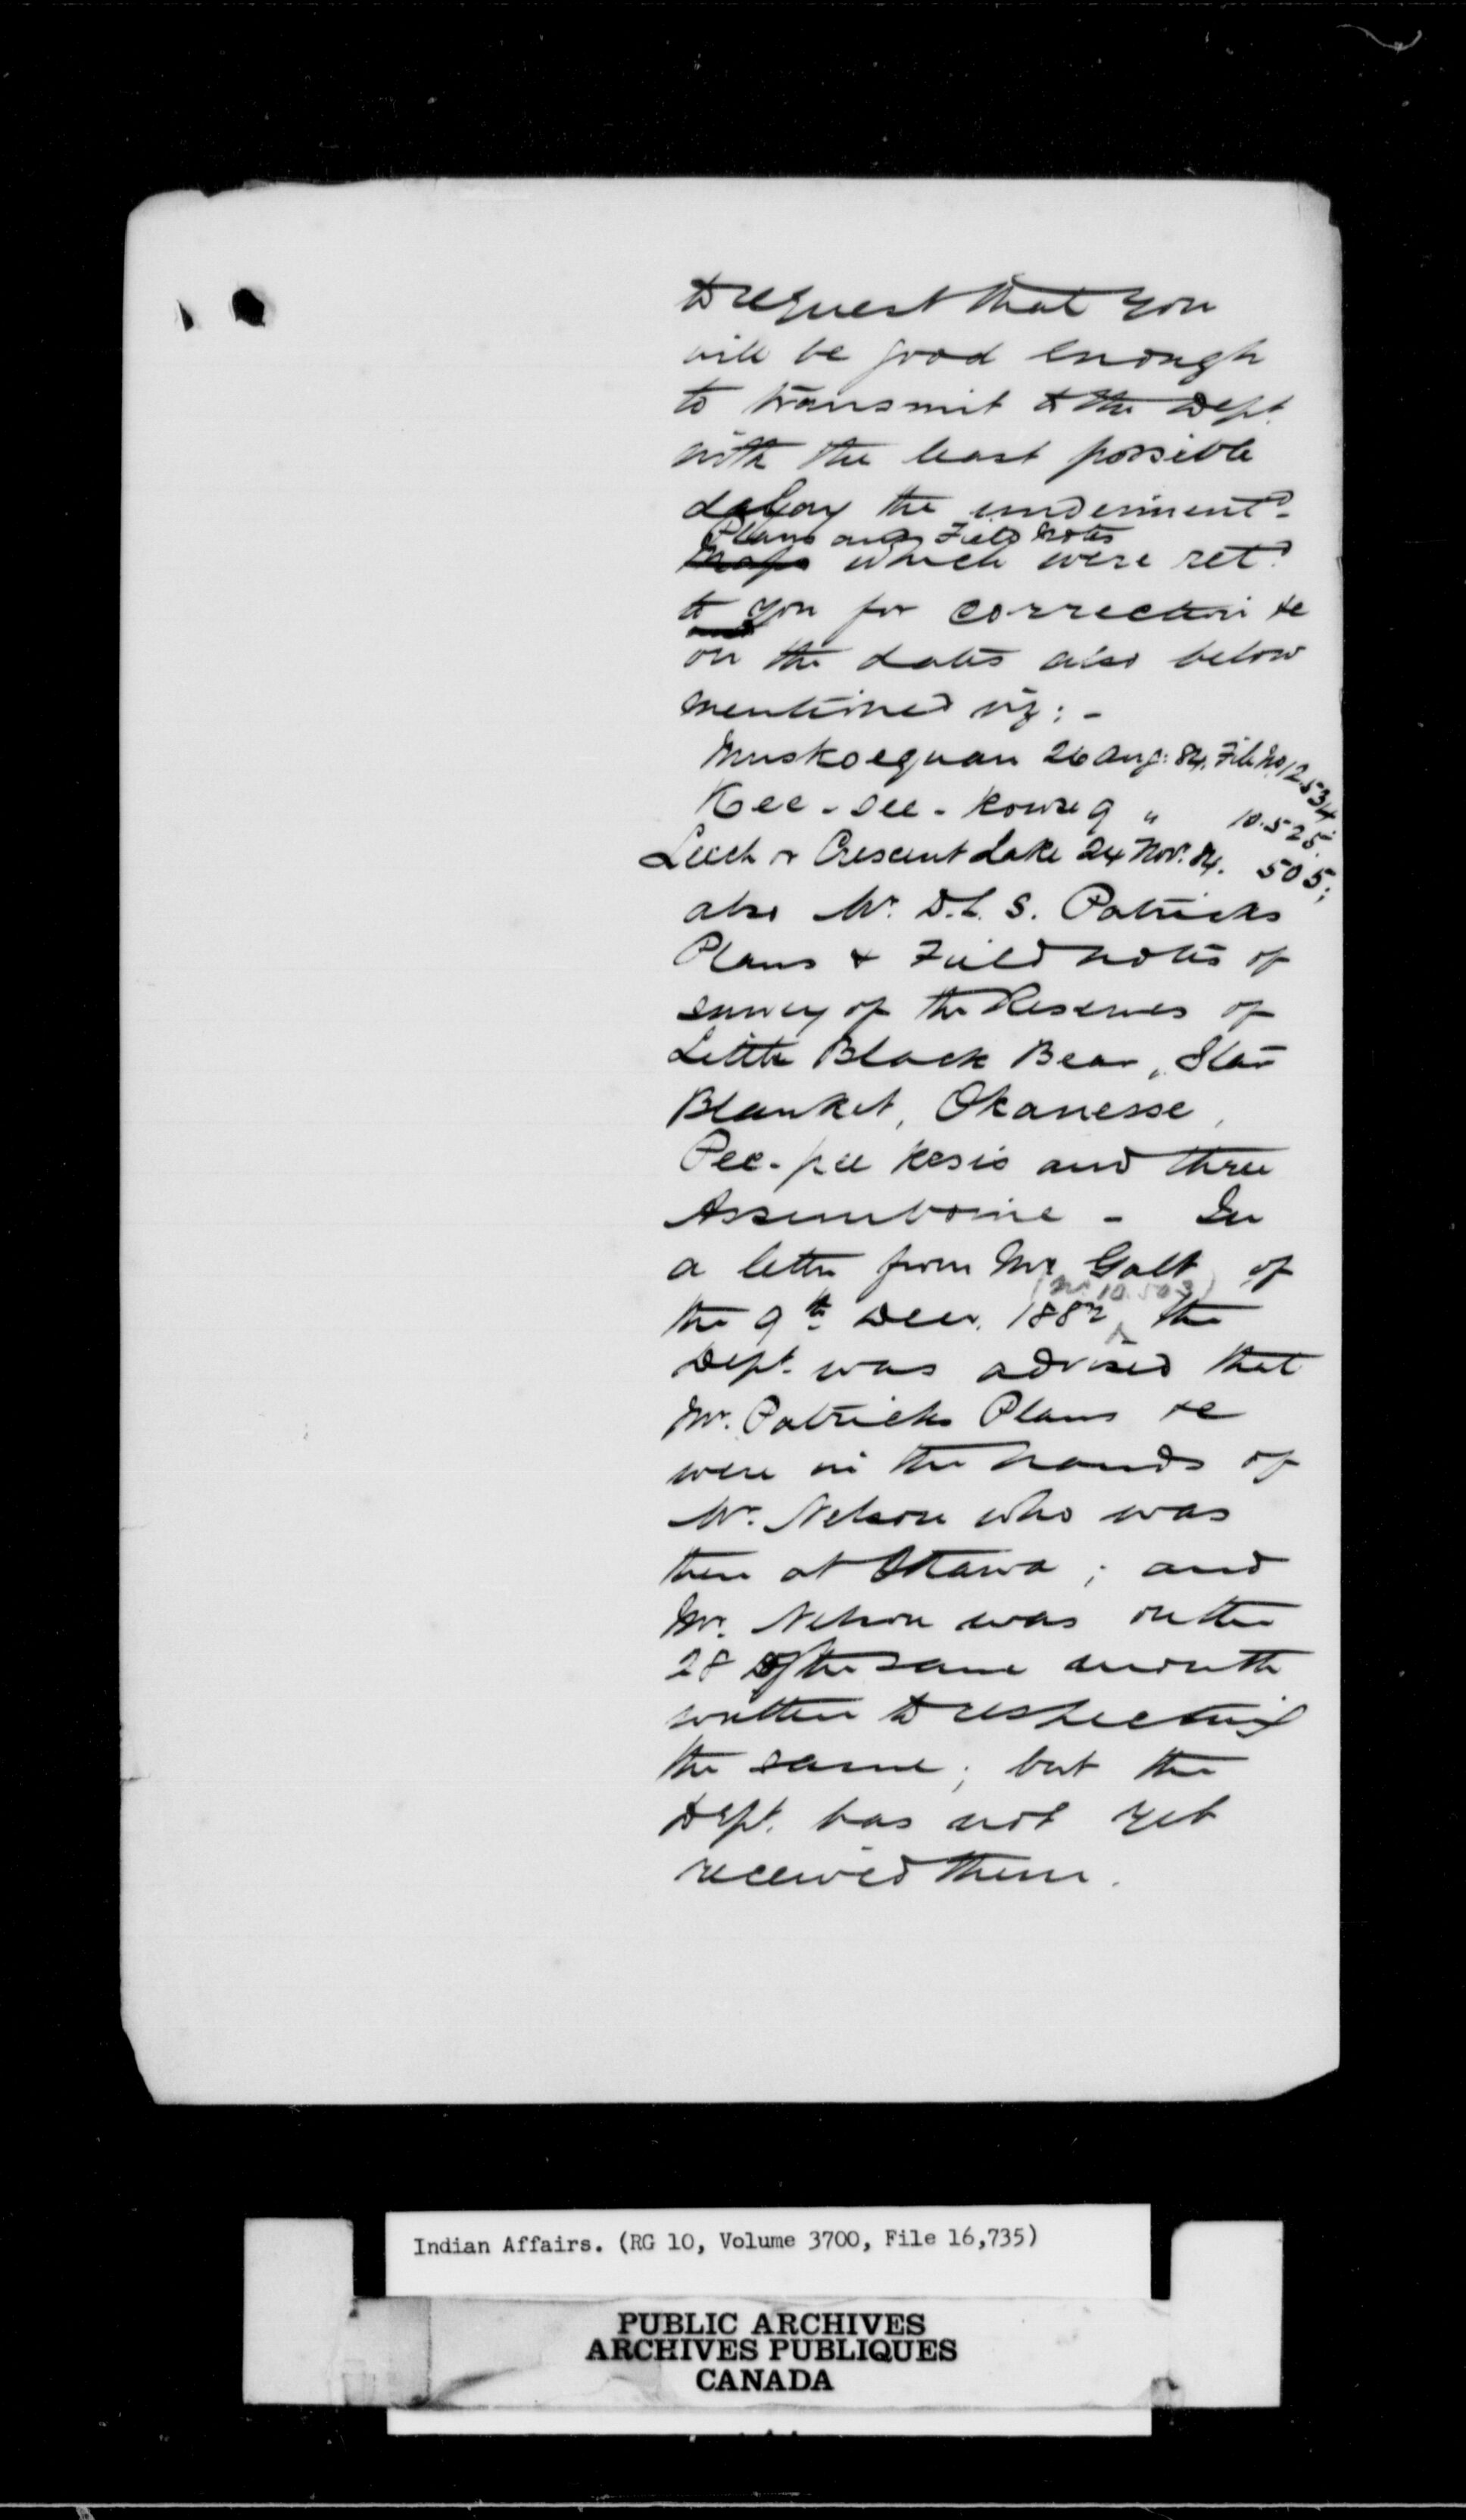 to request that you
will be good enough
to transmit to the Dept.
with the least possible
delay the underment.d
Plans and Field Notes
Maps which were ret.d
to you for correction &c
on the dates also below
mentioned viz: -
Muskoequan 26 Aug: 84. File No. 12534
Kee-see-kouse 9 " 10.525.
Leech & Crescent Lake 24 Nov. 84. 505;
also Mr. D.L.S. Patricks
Plans & Field notes of
survey of the Reserves of
Little Black Bear, Star
Blanket, Okanesse,
Pee-pee kesis and three
Assiniboine - In
a letter from Mr. Galt of
(No. 10.503)
the 9th Decr. 1882 the
Dept. was advised that
Mr. Patricks Plans &c
were in the hands of
Mr. Nelson who was
then at Ottawa; and
Mr. Nelson was on the
28 of the same month
written to respecting
the same; but the
Dept. has not yet
received them.
Indian Affairs. (RG 10, Volume 3700, File 16,735)
PUBLIC ARCHIVES
ARCHIVES PUBLIQUES
CANADA